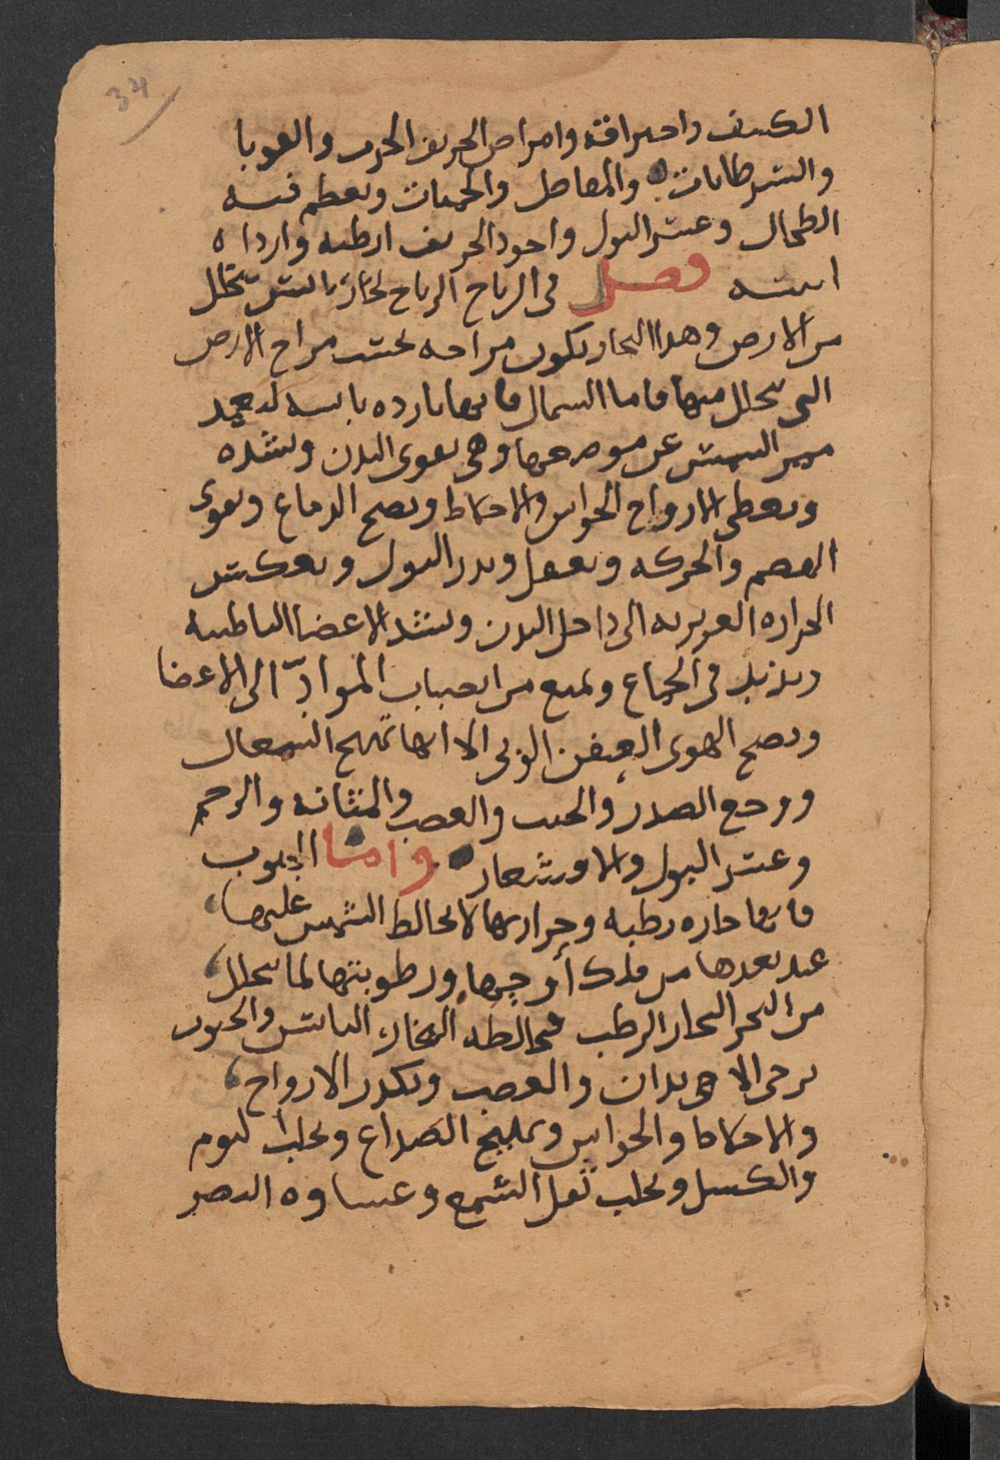 34
الكيف واحتراقه وامراض الخريف الجرب والقوبا
والسرطانات والمفاصل والحميات ويعظم فيه
الطحال وعسر البول واجود الخريف ارطبه وارداه
ايبسه فصل في الرياح الرياح بخار يابس يتحلل
من الارض وهذا البخار يكون مزاجه بحسب مزاج الارض
التي يتحلل منها فاما الشمال فانها بارده يابسه لبعد
ممر الشمس عن موضعها وهي تقوي البدن وتشده
وتعطي الارواح الحواس والاخلاط وتصح الدماغ وتقوي
الهضم والحركه وتعقل وتدر البول وتعكس
الحراره الغريزيه الى داخل البدن وتشد الاعضا الباطنه
وتزيد في الجماع وتمنع من انصباب المواد الى الاعضا
وتصح الهوى العفن الوبي الا انها تهيج السعال
ووجع الصدر والجنب والعصب والمثانه والرحم
وعسر البول والاقشعار واما الجنوب
فانها حاره رطبه وحرارتها لا تخالط الشمس عليها
عند بعدها من فلك أوجها ورطوبتها لما يتحلل
من البحر البخار الرطب فيخالطه البخار اليابس والجنوب
ترخي الابدان والعصب وتكدر الارواح
والاخلاط والحواس وتهيج الصداع وتجلب النوم
والكسل وتجلب ثقل السمع وغشاوه البصر